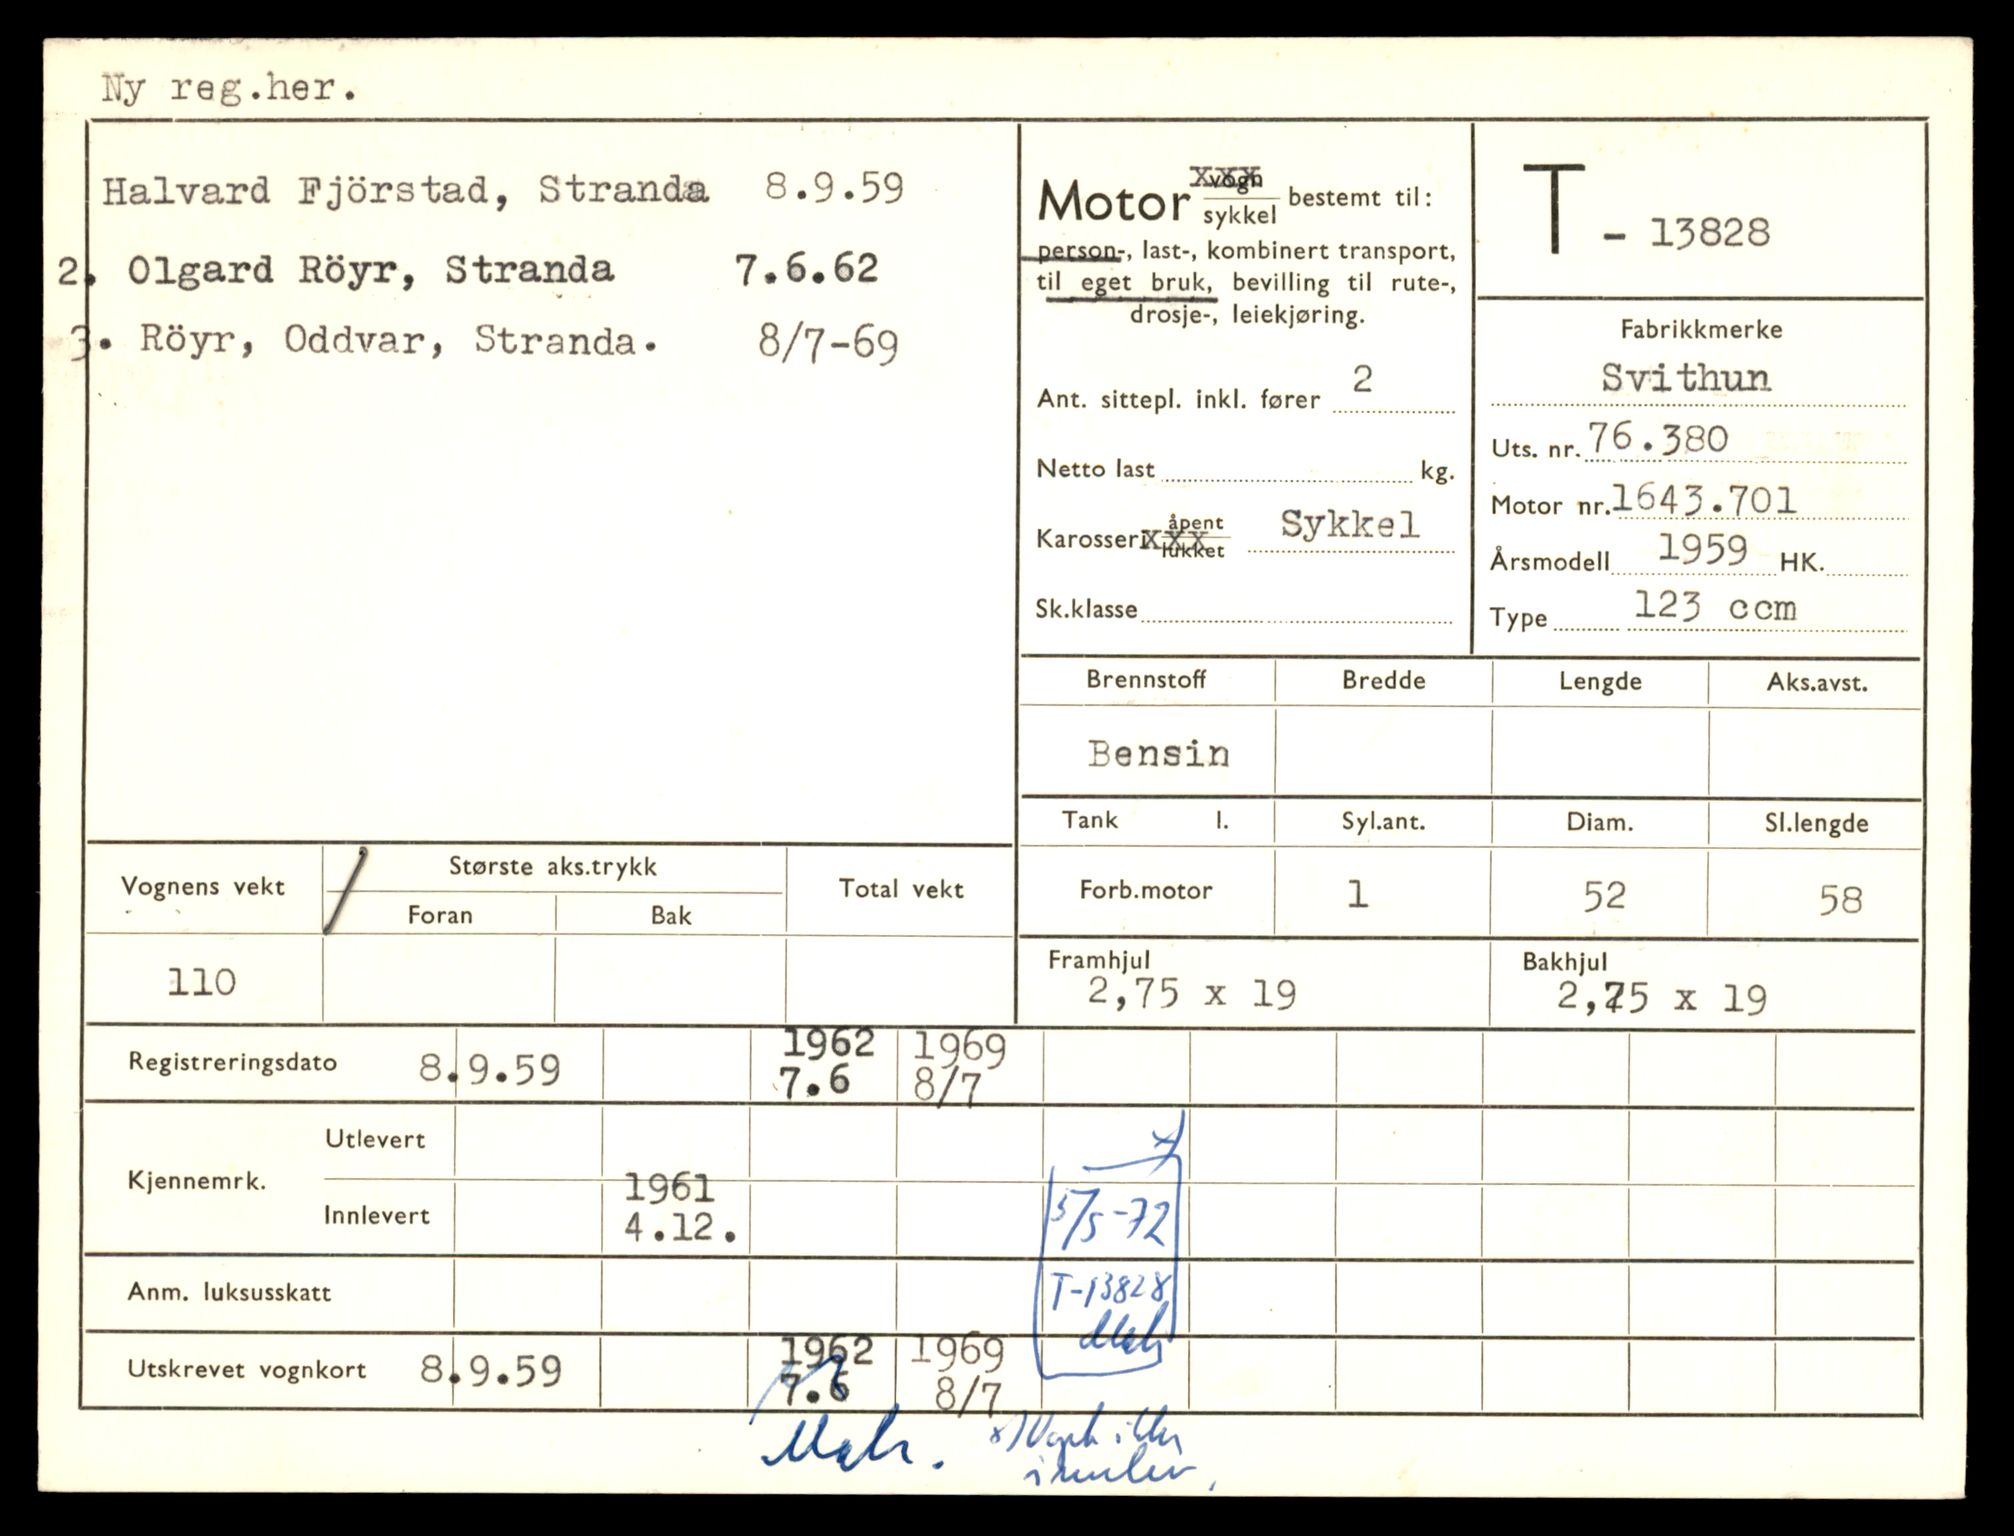 Ny reg.her.
Halvard Fjörstad, Stranda 8.9.59
2. Olgard Röyr, Stranda 7.6.62
3. Röyr, Oddvar, Stranda. 8/7-69
Motor vogn xxx
sykkel bestemt til:
person-, last-, kombinert transport,
til eget bruk, bevilling til rute-,
drosje-, leiekjøring.
Ant. sittepl. inkl. fører 2
Netto last kg.
Karosseri åpent
lukket xxx Sykkel
Sk.klasse
T - 13828
Fabrikkmerke
Svithun
Uts. nr. 76.380
Motor nr. 1643.701
Årsmodell 1959 HK.
Type 123 ccm
Brennstoff Bredde Lengde Aks.avst.
Bensin
Tank l. Syl.ant. Diam. Sl.lengde
Forb.motor 1 52 58
Framhjul
2,75 x 19
Bakhjul
2,75 x 19
Vognens vekt Største aks.trykk Total vekt
Foran Bak
110
Registreringsdato 8.9.59 1962 1969
7.6 8/7
Kjennemrk. Utlevert
Innlevert 1961
4.12.
x)
5/5-72
T-13828
Anm. luksusskatt
Utskrevet vognkort 8.9.59 1962 1969
7.6 8/7
x)